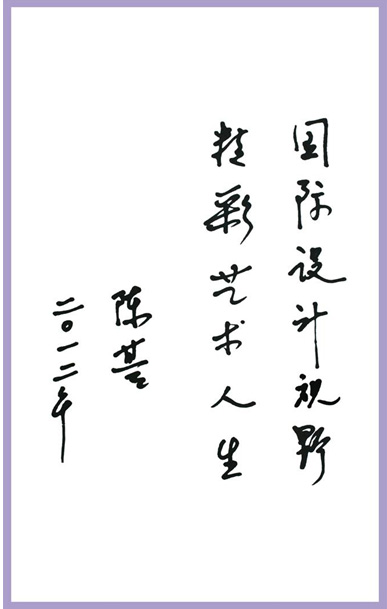 国际设计视野
精彩艺术人生
陈
二〇一二年